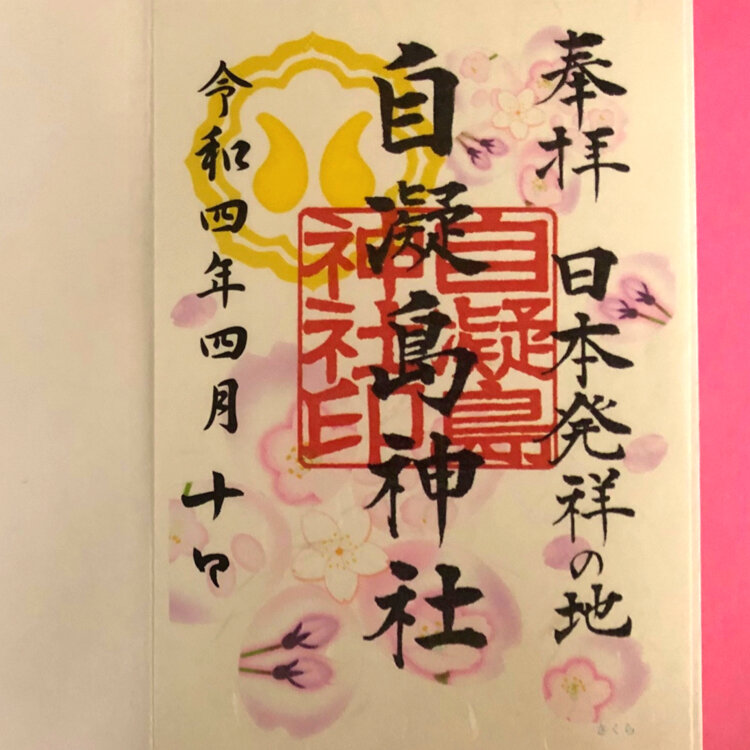 奉拝 日本発祥の地
自凝島神社
自凝島
神社印
令和四年四月十日
さくら